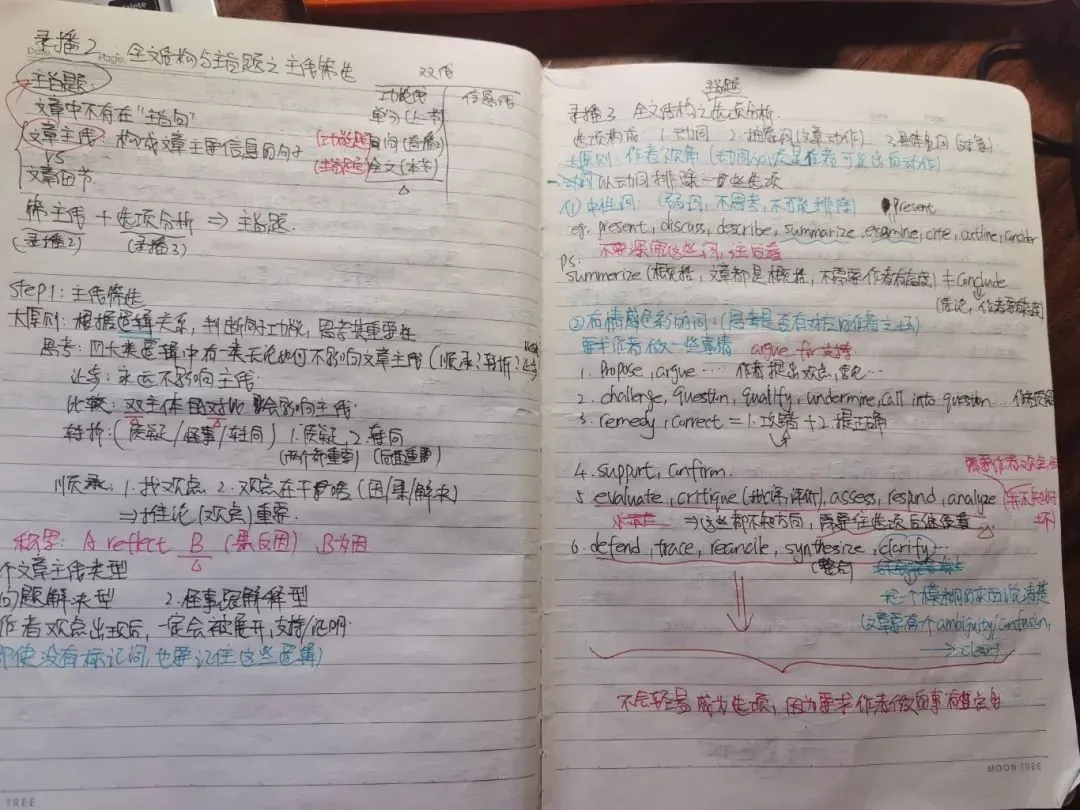 delete
录播2 全文结构与主旨题之主线筛选
Date.
Page.
主旨题:
文章中不存在"主旨句"
文章主线: 构成文章主要信息的句子
VS
文章细节.
双线
功能线
信息线
单句(上一节)
(功能题)目的(录播)
(主旨题)全文(本节)
筛主线 + 选项分析 ⇒ 主旨题.
(录播2) (录播3)
step1: 主线筛选
大原则: 根据逻辑关系, 判断句子功能, 思考其重要性
思考: 四大类逻辑中有一类无论如何不影响文章主线 (顺承? 转折? 让步
让步: 永远不影响主线
比较: 双主体的对比 会影响主线.
转折: (质疑/怪事/转向) 1.质疑, 2.转向
(两个都重要) (后面重要)
顺承: 1.找观点 2.观点在干嘛 (因/果/解决)
⇒推论(观点)重要.
A reflect B (果反因) B为因
个文章主线类型
问题解决型 2.怪事现解释型
作者观点出现后, 一定会被展开, 支持/证明.
即使没有标记词, 也要记住这些逻辑)
TREE
主旨题
录播3 全文结构之选项分析.
Date
Page
选项构成: 1.动词 2.抽象词(文章动作) 3.具体名词(对象)
大原则: 作者视角 (动词必须是作者可发出的动作)
以动词排除一些选项
①中性词: (弱词, 不思考, 不可能排除) present
eg. present, discuss, describe, summarize, examine, cite, outline, consider
不要深究这些词, 往后看
PS:
summerize (概括, 文章都是概括, 不需要作者有态度) ≠ conclude
(结论, 作者要有态度)
②有情感色彩的词: (思考是否有对应的作者立场)
要求作者做一些事情 argue for 支持
1. Propose, argue …… 作者提出观点, 结论…
2. challenge, question, qualify, undermine, call into question … 作者质疑
3. remedy, correct = 1.攻错 + 2.提正确
4. support, confirm.
需要作者观点
5 evaluate, critique (批评, 评价), assess, respond, analyze
⇒这些都不知方向, 需要往选项后继续看
6. defend, trace, reconcile, synthesize, clarify…
(整合)
把一个模糊的东西说清楚
(文章要有个ambiguity/confusion,
→clear)
不会轻易成为选项, 因为要求作者做的事有难度
MOON TREE